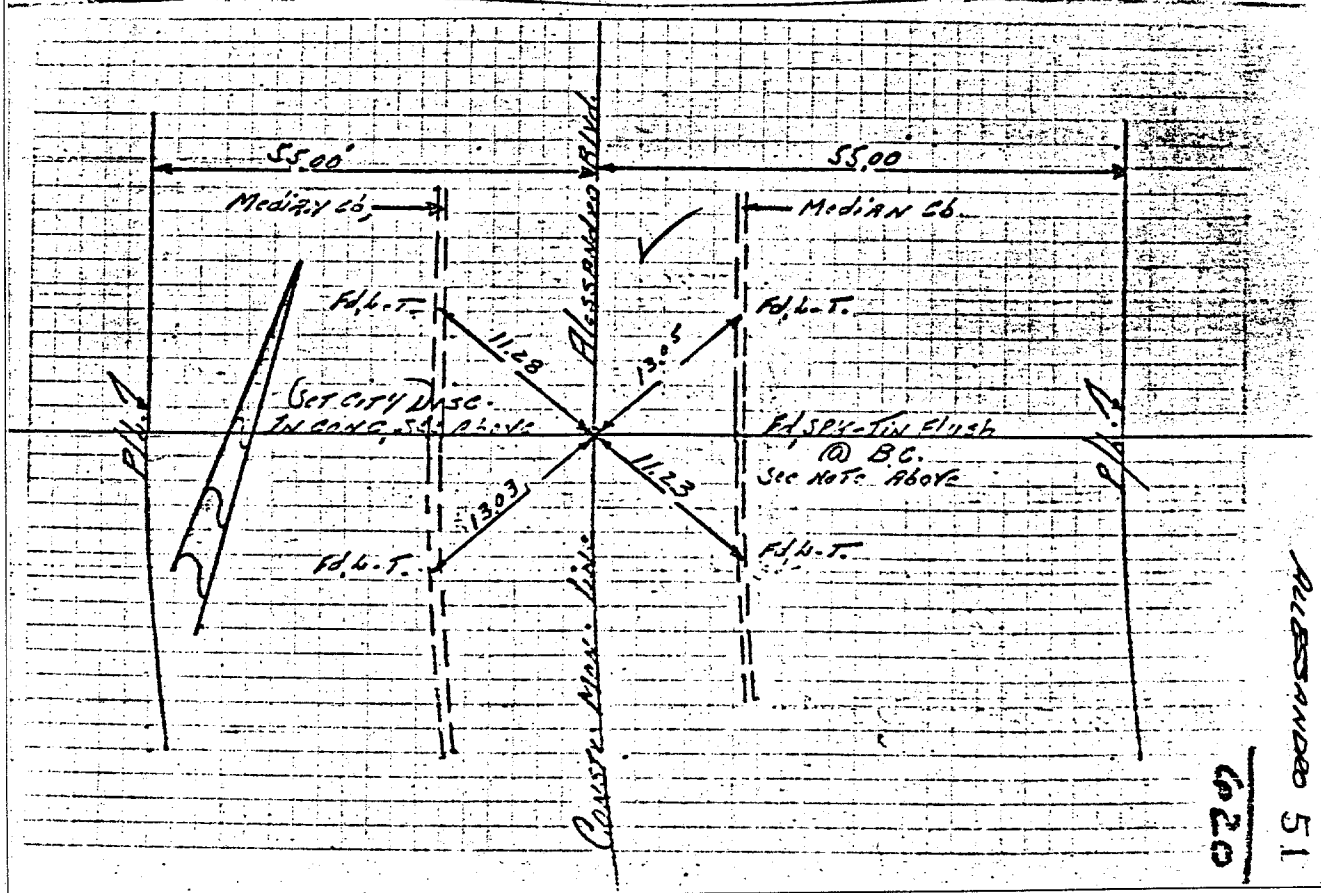 55.00'
55.00
Median Cb.
Median Cb.
Alessandro Blvd.
Fd. L-T.
Fd. L-T.
11.28
13.05
(Set City Disc.
In Conc, See Above
Fd, Spk-Tin Flush
@ B.C.
See Note Above
P/L
P/L
13.03
11.23
Fd. L-T.
Fd. L-T.
Constr. Mon. Line
ALLESSANDRO 51
620